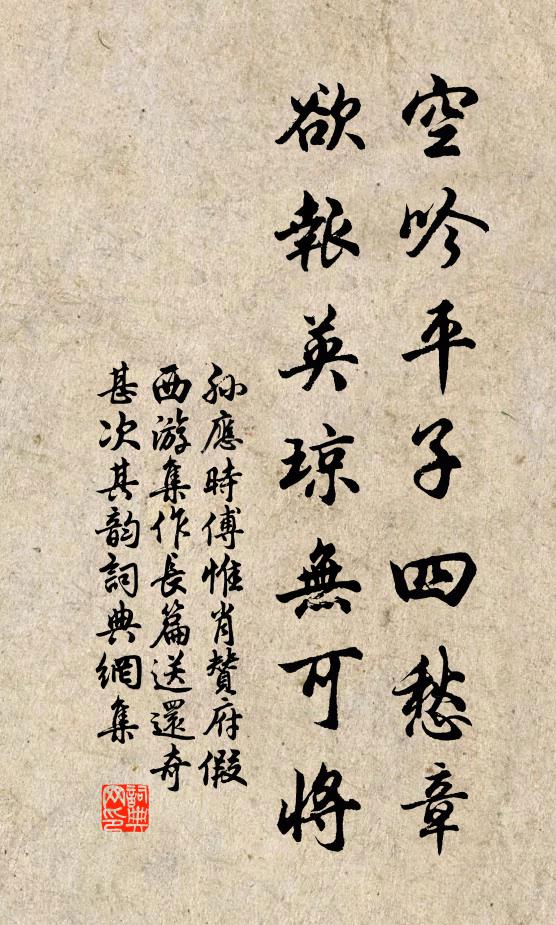 空吟平子四愁章
欲報英瓊無可將
孫應時傅惟肖贊府假
西游集作長篇送還奇
甚次其韵詞典網集
詞典网印